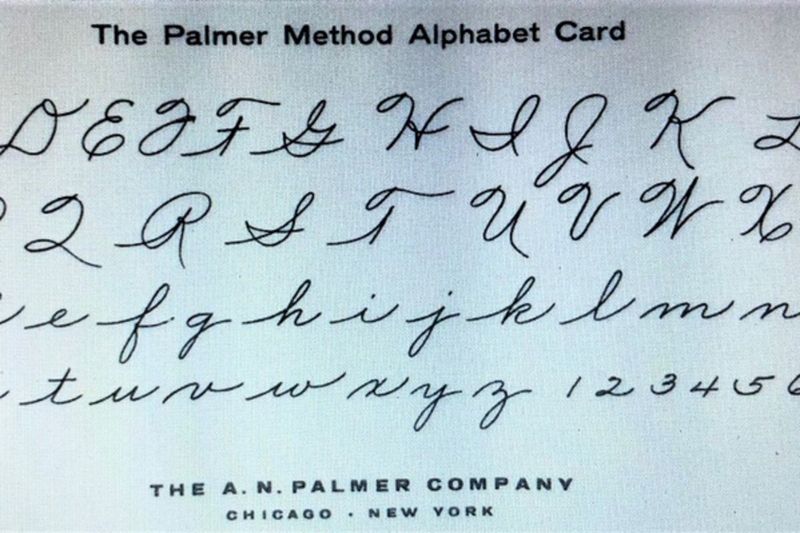 The Palmer Method Alphabet Card
D E F F G H I J K L
Q R S T U V W X
e f g h i j k l m n
t u v w x y z 1 2 3 4 5 6
THE A. N. PALMER COMPANY
CHICAGO . NEW YORK